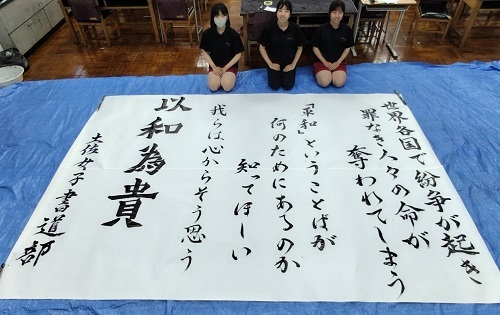 世界各国で紛争が起き
罪なき人々の命が
奪われてしまう
「平和」ということばが
何のためにあるのか
知ってほしい
我らは心からそう思う
以和為貴
土佐女子書道部